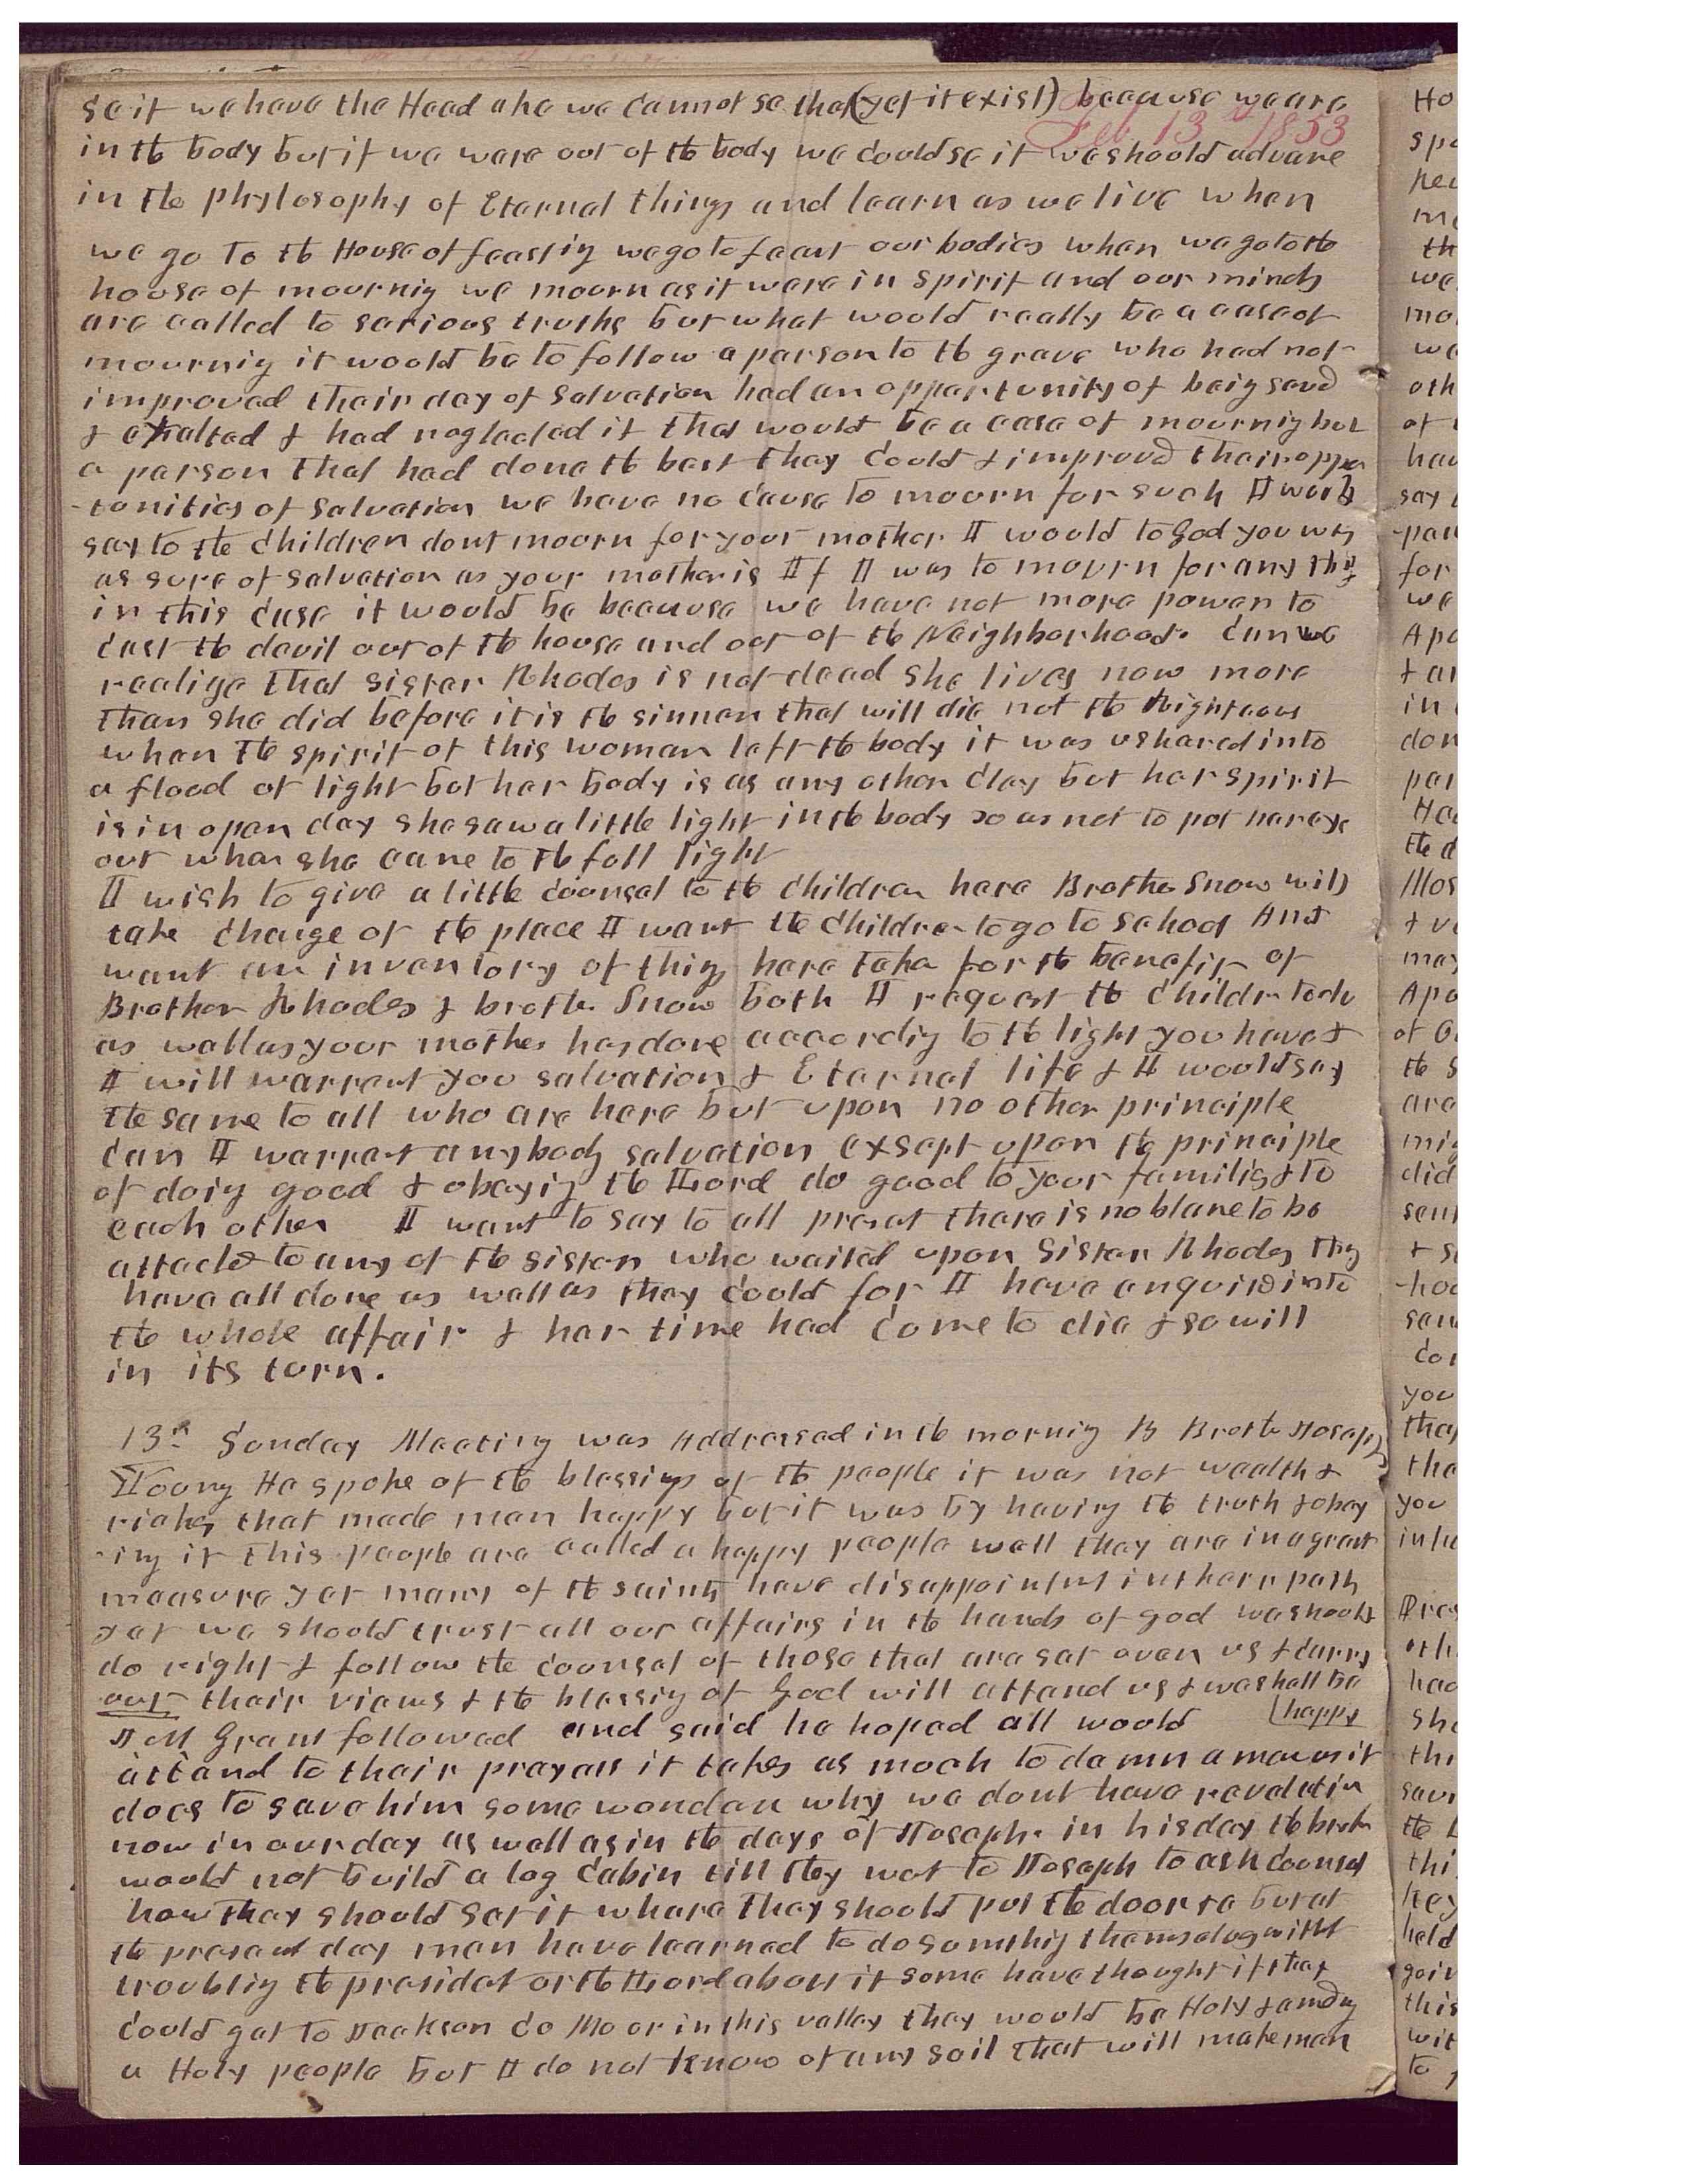 se it we have the Head ake we cannot se that (yet it exist) because we are
Feb 13th 1853
in the body but if we were out of the body we could se it we should advance
in the phylosophy of Eternal things and learn as we live when
we go to the House of feasting we go to feast our bodies when we go to the
house of mourning we mourn as it were in spirit and our minds
are called to serious truths but what would really be a case of
mourning it would be to follow a person to the grave who had not
improved their day of salvation had an oppertunity of being saved
& exhalted & had neglected it that would be a case of mourning but
a person that had done the best they could & improved their opper
-tunities of salvation we have no cause to mourn for such I would
say to the children dont mourn for your mother I would to God you were
as sure of salvation as your mother is If I was to mourn for any thing
in this case it would be because we have not more power to
cast the devil out of the house and out of the Neighborhood. Can we
realize that sister Rhodes is not dead she lives now more
than she did before it is the sinner that will die not the Righteous
when the spirit of this woman left the body it was ushared into
a flood of light but her body is as any other clay but her spirit
is in open day she saw a little light in the body so as not to put her eye
out when she came to the full light
I wish to give a little counsel to the children here Brother Snow will
take charge of the place I want the children to go to school And
want an inventory of things here taken for the benefit of
Brother Rhodes & brother Snow both I request the children to do
as well as your mother has done according to the light you have &
I will warrent you salvation & Eternal life & I would say
the same to all who are here but upon no other principle
can I warrant any body salvation except upon the principle
of doing good & obeying the Lord do good to your families & to
each other I want to say to all present there is no blame to be
attached to any of the sisters who waited upon Sister Rhodes they
have all done as well as they could for I have enquired into
the whole affair & her time had come to die & so will
in its turn.
13th Sunday Meeting was Addressed in the morning By Brother Joseph
Young He spoke of the blessings of the people it was not wealth &
riches that made man happy but it was by having the truth & obey
-ing it this people are called a happy people well they are in a great
measure yet many of the saints have disappointment in their path
yet we should trust all our affairs in the hands of god we should
do right & follow the counsel of those that are set over us & carry
out their views & the blessing of God will attend us & we shall be
happy
J M Grant followed and said he hoped all would
attend to their prayers it takes as much to damn a man as it
does to save him some wonder why we dont have revelation
now in our day as well as in the days of Joseph. in his day the brethren
would not build a log cabin till they went to Joseph to ask counsel
how they should set it where they should put the door &c but at
the present day men have learned to do something themselves without
troubling the president or the Lord about it some have thought if they
could get to Jackson Co Mo or in this valley they would be Holy &
a Holy people but I do not know of any soil that will make man